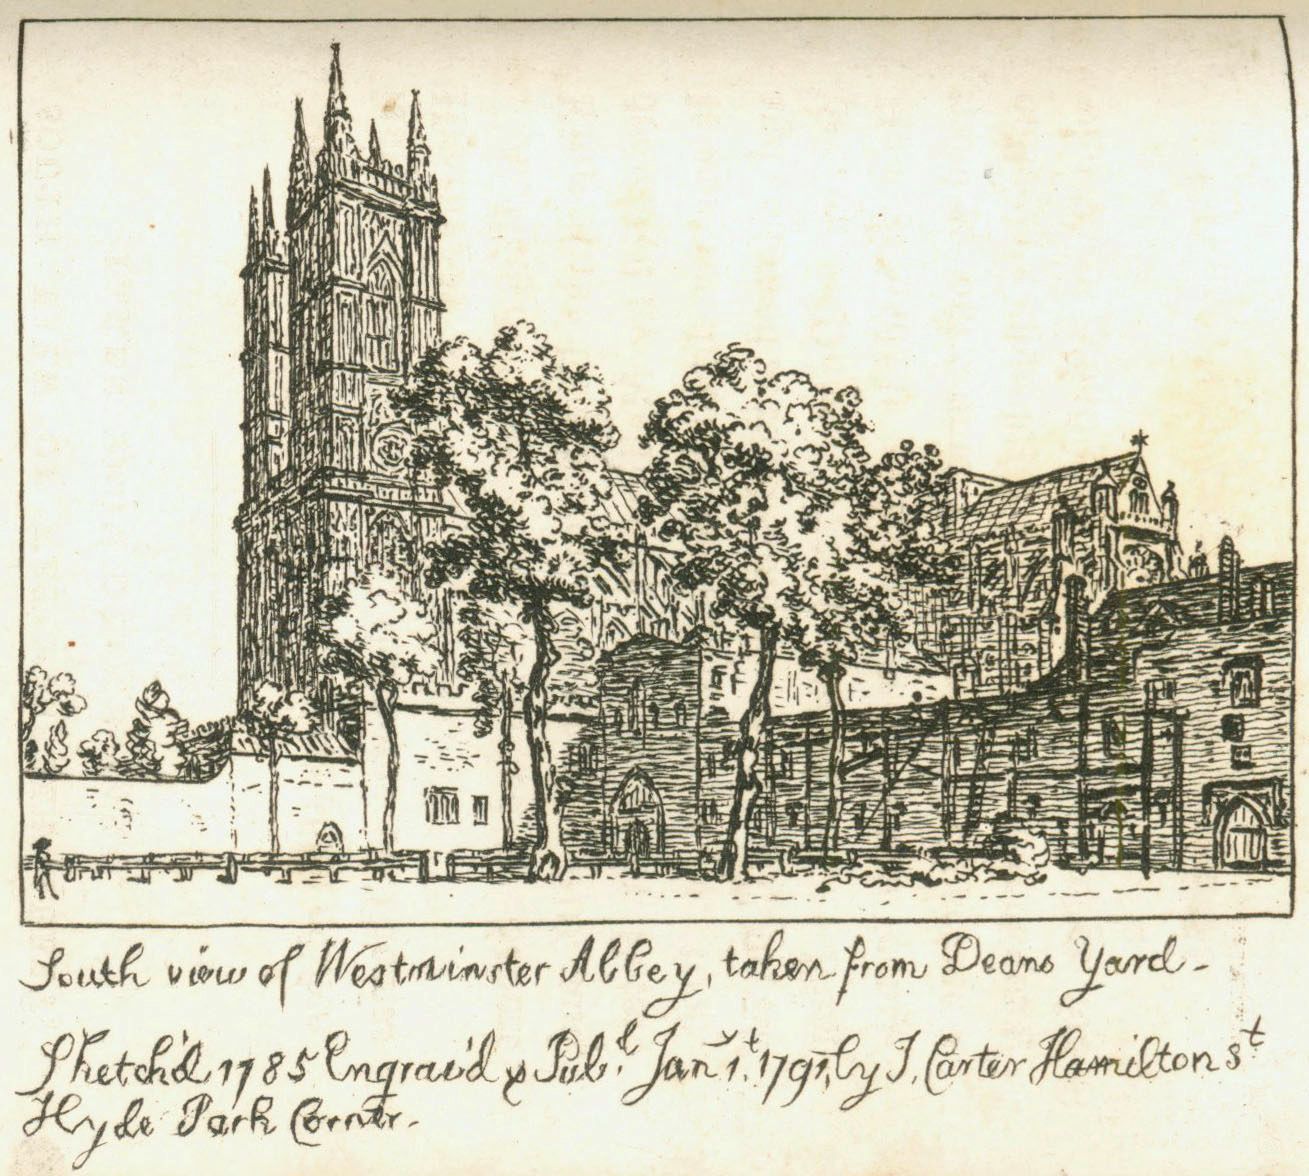 South view of Westminster Abbey, taken from Deans Yard-
Sketch'd 1785 Engrav'd & Pub.d Jany 1.t 1791, by J. Carter Hamilton St
Hyde Park Corner.